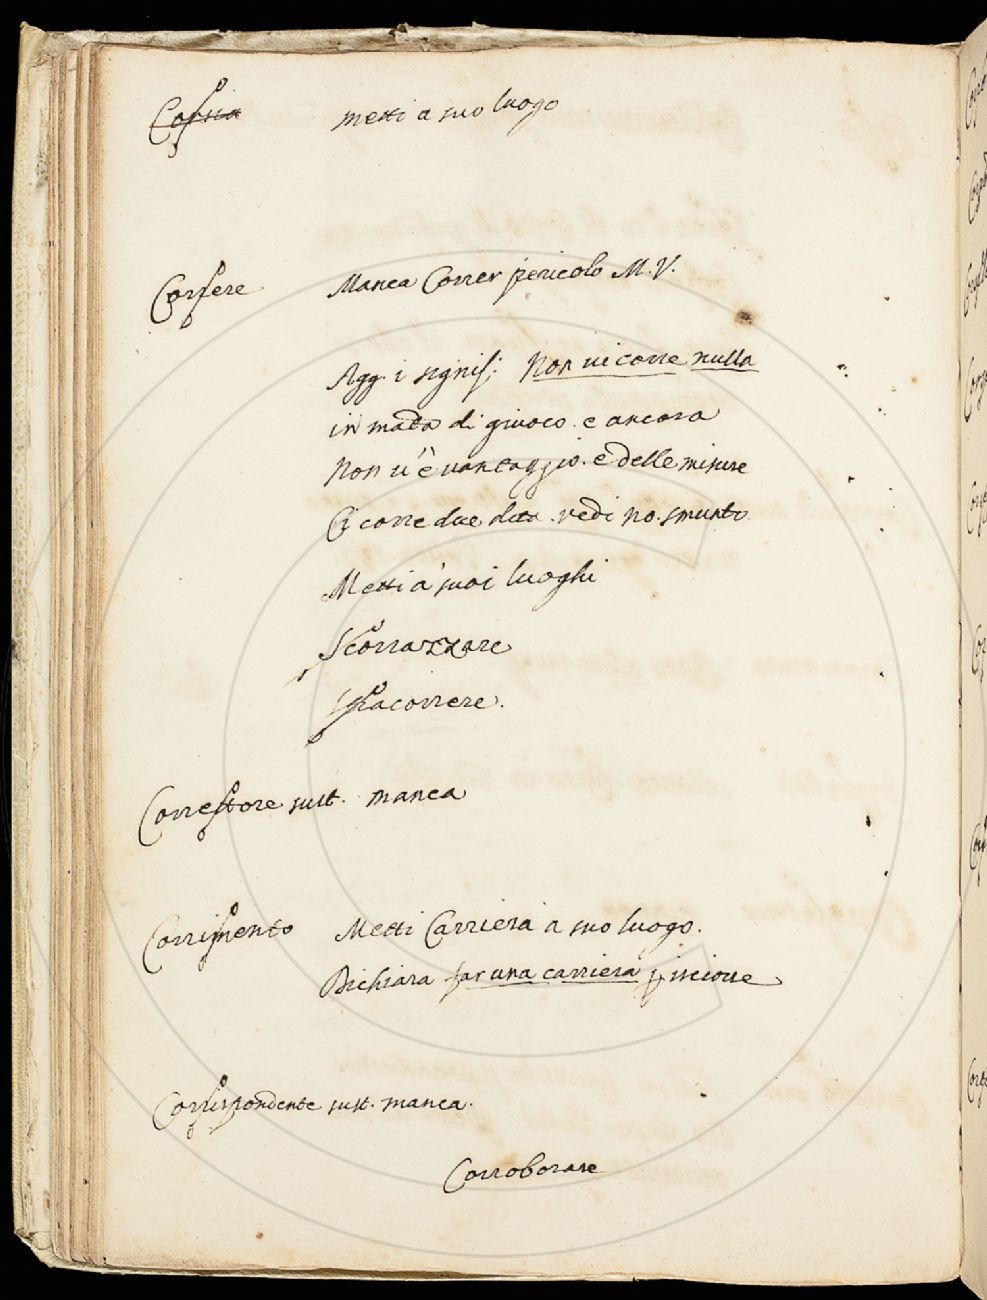 Corsia metti a suo luogo
Correre Manca Correr pericolo M.V.
Agg. i signif: Non vi corre nulla
in mãda di giuoco. e ancora
Non v'è vantaggio. e delle misure
Ci corre due dita. vedi no. smunto
Metti a' suoi luoghi
Scorrazzare
Stracorrere.
Correttore sust. manca
Corrimento Metti Carriera a suo luogo.
Dichiara far una carriera
Corrispondente sust. manca.
Corroborare